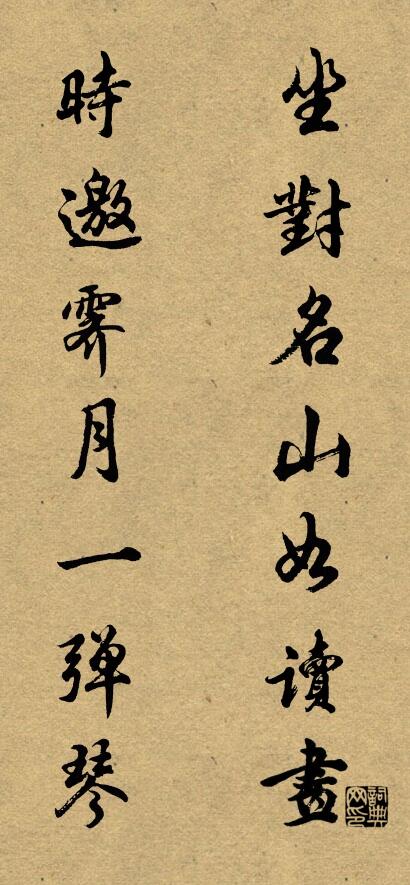 坐對名山如讀畫
時邀霽月一弹琴
詞典网印